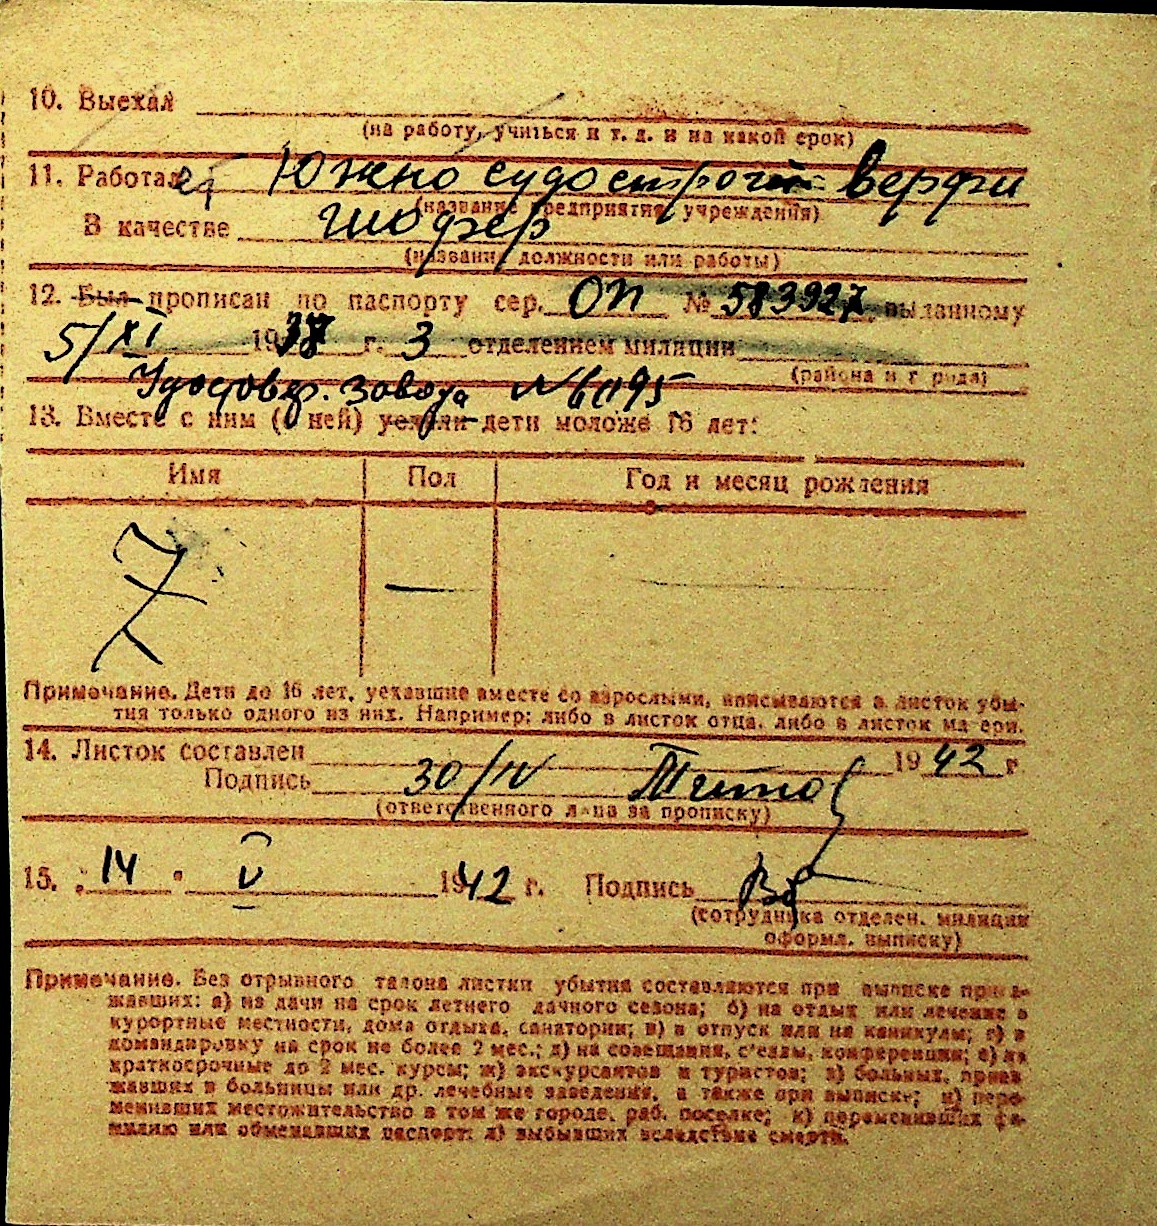 10. Выехал
(на работу, учиться и т. д. и на какой срок)
11. Работал Южно судострой верфи
(название предприятия, учреждения)
В качестве шофер
(название должности или работы)
12. Был прописан по паспорту сер. ОП № 583927 выданному
5/XI 1937 г. 3 отделением милиции
(района и города)
Удостовер. завода № 6095
13. Вместе с ним (с ней) уехали дети моложе 16 лет:
Имя Пол Год и месяц рождения
—
Примечание. Дети до 16 лет, уехавшие вместе со взрослыми, вписываются в листок убы-
тия только одного из них. Например: либо в листок отца, либо в листок матери.
14. Листок составлен 1942 г.
Подпись 30/IV Титов
(ответственного лица за прописку)
15. „14" V 1942 г. Подпись
(сотрудника отделен. милиции
оформл. выписку)
Примечание. Без отрывного талона листки убытия составляются при выписке приез-
жавших: а) на дачи на срок летнего дачного сезона; б) на отдых или лечение в
курортные местности, дома отдыха, санатории; в) в отпуск или на каникулы; г) в
командировку на срок не более 2 мес.; д) на совещания, съезды, конференции; е) на
краткосрочные до 2 мес. курсы; ж) экскурсантов и туристов; з) больных, приез
жавших в больницы или др. лечебные заведения, а также при выписке; и) пере-
менивших местожительство в том же городе, раб. поселке; к) переменивших фа-
милию или обменявших паспорт; л) выбывших вследствие смерти.